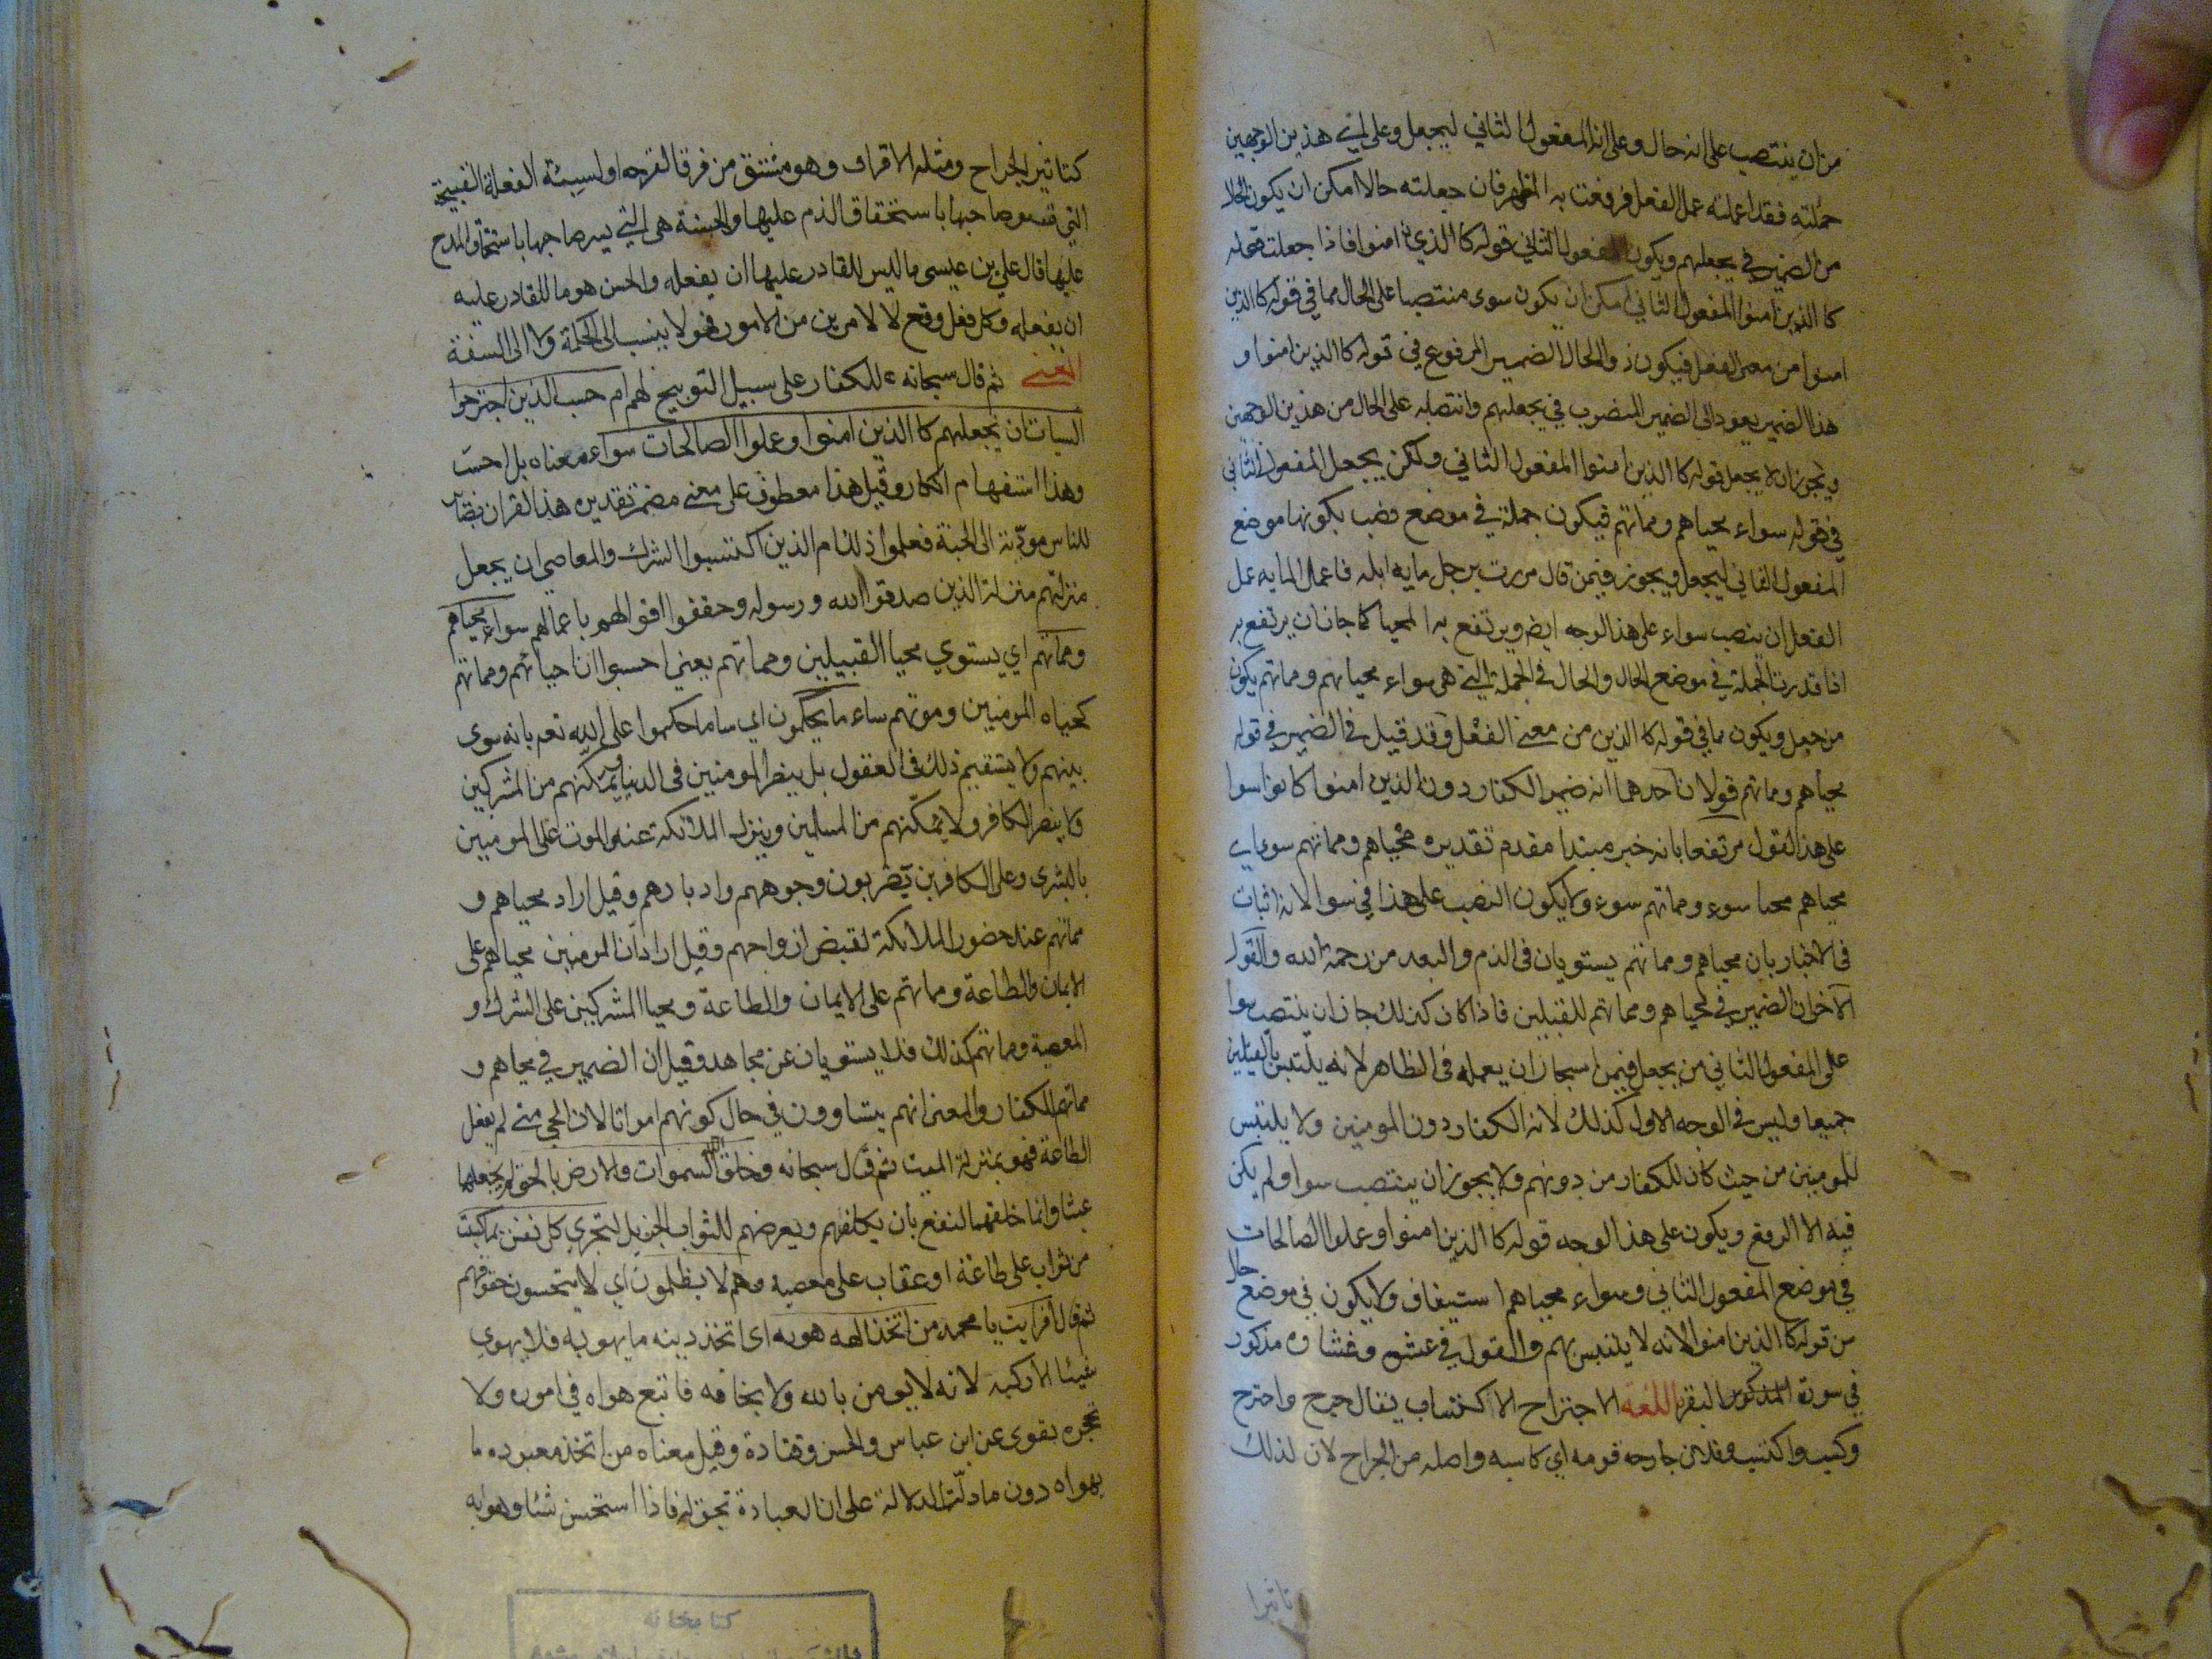 من ان ينتصب على انه حال وعلى انه المفعول الثاني ليجعل وعلى اي هذين الوجهين
حملته فقد اعملته عمل الفعل فرفعت به المظهر فان جعلته حالا امكن ان يكون الحال
من الضمير في يجعلهم ويكون المفعول الثاني قوله كالذين امنوا فاذا جعلت قوله
كالذين امنوا المفعول الثاني امكن ان يكون سوى منتصبا على الحال مما في قوله كالذين
امنوا من معنى الفعل فيكون ذو الحال الضمير المرفوع في قوله كالذين امنوا و
هذا الضمير يعود الى الضمير المنصوب في يجعلهم وانتصابه على الحال من هذين الوجهين
ويجوز ان لا يجعل قوله كالذين امنوا المفعول الثاني ولكن يجعل المفعول الثاني
في قوله سواء محياهم ومماتهم فيكون جملة في موضع نصب بكونها موضع
المفعول الثاني ليجعل ويجوز فيمن قال مررت برجل مايه ابله فاعمل المايه عمل
الفعل ان ينصب سواء على هذا الوجه ايض ويرتفع به المحيا كما جاز ان يرتفع به
اذا قدرت الجملة في موضع الحال والحال في الجملة التي هي سواء محياهم ومماتهم يكون
من جعل ويكون مما في قوله كالذين من معنى الفعل وقد قيل في الضمير في قوله
محياهم ومماتهم قولان احدهما انه ضمير الكفار دون الذين امنوا كانوا سوا
على هذا القول مرتفعا بانه خبر مبتدا مقدم تقديره محياهم ومماتهم سواء اي
محياهم محيا سوء ومماتهم سوء ولا يكون النصب على هذا في سوا لانه اثبات
في الاخبار بان محياهم ومماتهم يستويان في الذم والبعد من رحمة الله والقول
الاخر ان الضمير في محياهم ومماتهم للقبيلين فاذا كان كذلك جاز ان ينتصب سوا
على المفعول الثاني من يجعل فيمن استجاز ان يعمله في الظاهر لانه يلتبس بالقبيلين
جميعا وليس في الوجه الاول كذلك لانه الكفار دون المومنين ولا يلتبس
للمومنين من حيث كان للكفار من دونهم ولا يجوز ان ينتصب سوا ولم يكن
فيه الا الرفع ويكون على هذا الوجه قوله كالذين امنوا وعملوا الصالحات
في موضع المفعول الثاني وسواء محياهم استيناف ولا يكون في موضع حال
من قوله كالذين امنوا لانه لا يلتبس بهم والقول في غشوة وغشاوة مذكور
في سورة المذكور البقرة اللغة الاجتراح الاكتساب يقال جرح واجترح
وكسب واكتسب وفلان جارحة قومه اي كاسبه واصله من الجراح لان لذلك
تاثيرا
كتاثير الجراح ومثله الاقراف وهو مشتق من قرف القرحة والسيئة الفعلة القبيحة
التي تسوء صاحبها باستحقاق الذم عليها والحسنة هي التي يسر صاحبها باستحقاق المدح
عليها قال علي بن عيسى ما ليس للقادر عليها ان يفعله والحسن هو ما للقادر عليه
ان يفعله وكل فعل وقع لا لامر من الامور فهو لا ينسب الى الحكمة ولا الى السفة
المعنى ثم قال سبحانه للكفار على سبيل التوبيخ لهم ام حسب الذين اجترحوا
السيات ان نجعلهم كالذين امنوا وعملوا الصالحات سواء معناه بل احسب
وهذا استفهام انكار وقيل هذا معطوف على معنى مضمر تقديره هذا القران بصاير
للناس مودية الى الجنة فعلموا ذلك ام الذين اكتسبوا الشرك والمعاصي ان يجعل
منزلتهم منزلة الذين صدقوا الله ورسوله وحققوا اقوالهم باعمالهم سواء محياهم
ومماتهم اي يستوي محيا القبيلين ومماتهم يعني احسبوا ان حياتهم ومماتهم
كحياه المومنين وموتهم ساء ما يحكمون اي ساء ما حكموا على الله تعم بانه سوى
بينهم ولا يستقيم ذلك في العقول بل ينصر المومنين في الدنيا ويمكنهم من المشركين
ولا ينصر الكافر ولا يمكنهم من المسلمين وينزل الملائكة عند الموت على المومنين
بالبشرى وعلى الكافرين يضربون وجوههم وادبارهم وقيل اراد محياهم و
مماتهم عند حضور الملائكة لقبض ارواحهم وقيل اراد ان المومنين محياهم على
الايمان والطاعة ومماتهم على الايمان والطاعة ومحيا المشركين على الشرك و
المعصية ومماتهم كذلك فلا يستويان عن مجاهد وقيل ان الضمير في محياهم و
مماتهم للكفار والمعنى انهم يتساوون في حال كونهم امواتا لان الحي متى لم يفعل
الطاعة فهو بمنزلة الميت ثم قال سبحانه وخلق الله السموات والارض بالحق لم يجعلهما
عبثا وانما خلقهما لنفع بان يكلفهم ويعرضهم للثواب الجزيل لتجزي كل نفس بما كسبت
من ثواب على طاعة او عقاب على معصية وهم لا يظلمون اي لا يبخسون حقوقهم
ثم قال افرايت يا محمد من اتخذ الهه هويه اى اتخذ دينه ما يهويه فلا يهوي
شيئا الا ركبه لانه لا يومن بالله ولا يخافه فاتبع هواه في اموره ولا
يحجزه تقوى عن ابن عباس والحسن وقتادة وقيل معناه من اتخذ معبوده ما
يهواه دون ما دلت الدلالة على ان العبادة تحق له فاذا استحسن شيئا وهويه
كتابخانه